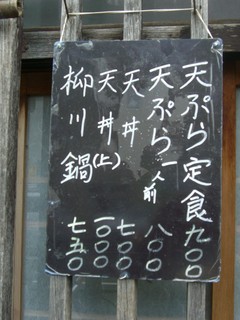 天ぷら定食九〇〇
天ぷら一人前八〇〇
天丼七〇〇
天丼(上)一〇〇〇
柳川鍋七五〇